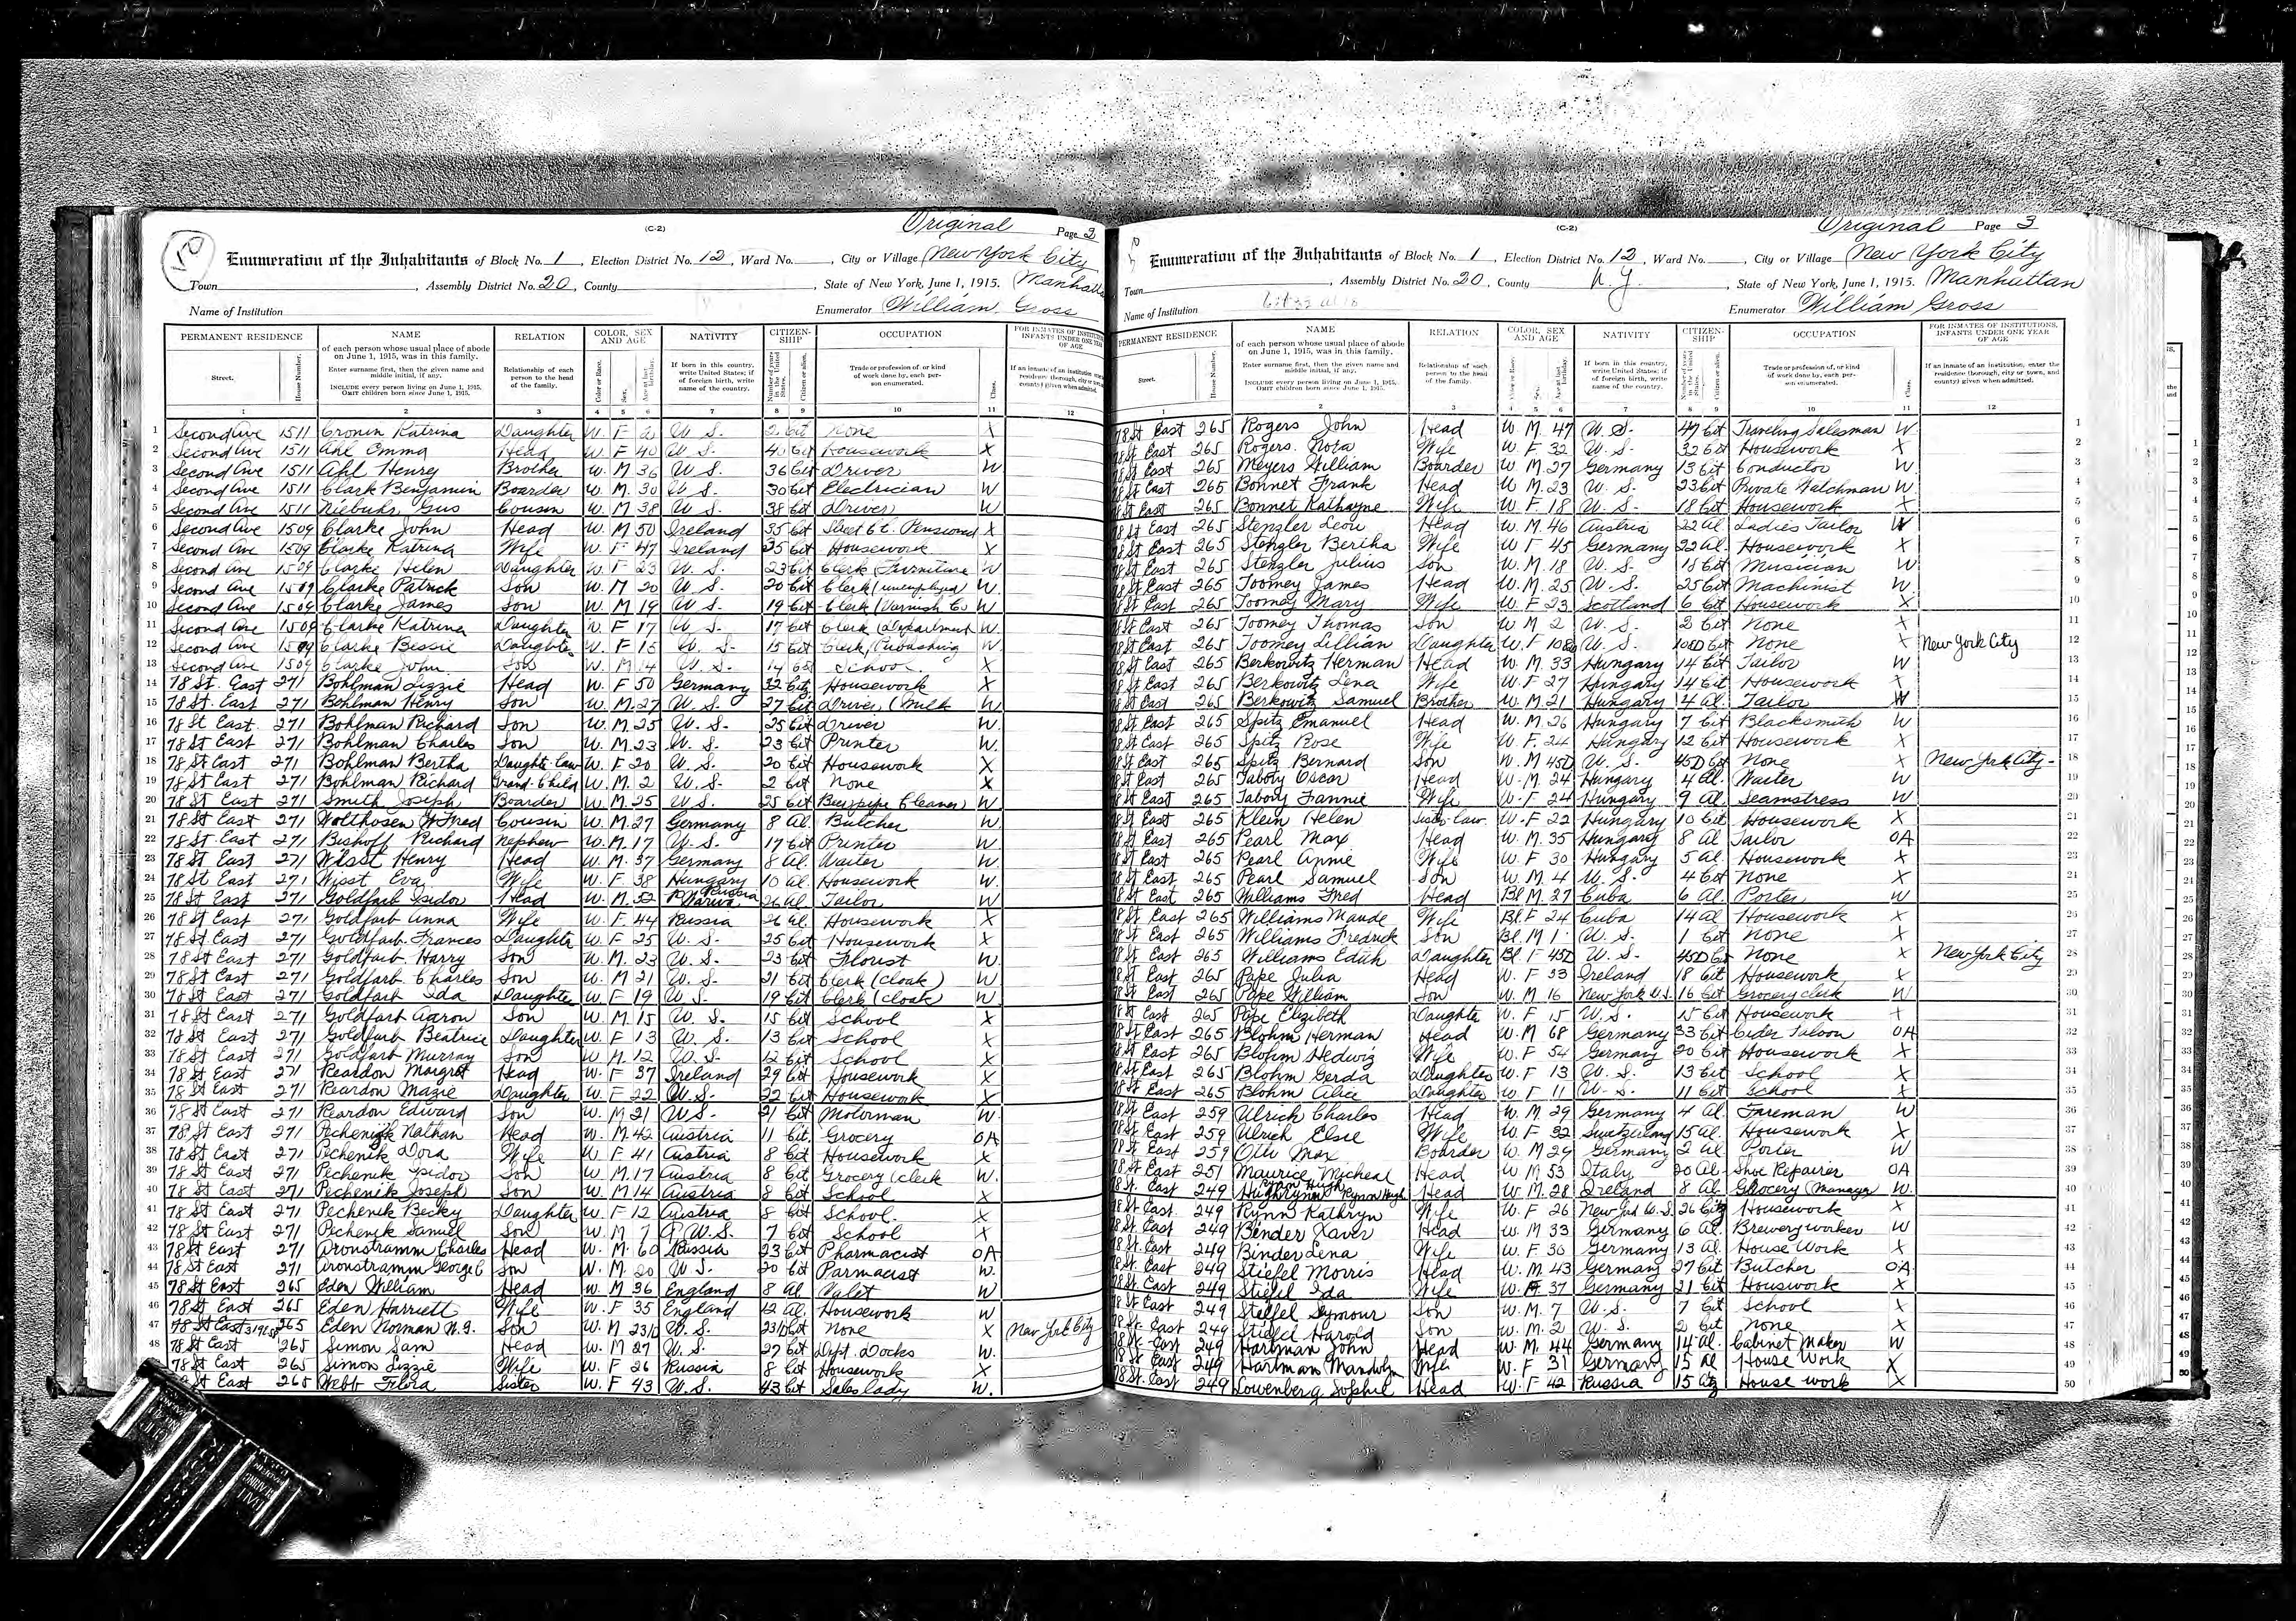 Original
(C-2) Page 2
50
Enumeration of the Inhabitants of Block No. 1, Election District No. 12, Ward No. , City or Village New York City
Town , Assembly District No. 20, County , State of New York, June 1, 1915. Manhatta
Name of Institution Enumerator William Gross
PERMANENT RESIDENCE NAME RELATION COLOR, SEX AND AGE NATIVITY CITIZENSHIP OCCUPATION FOR INMATES OF INSTITUTIONS, INFANTS UNDER ONE YEAR OF AGE
Street. House Number. of each person whose usual place of abode on June 1, 1915, was in this family. Enter surname first, then the given name and middle initial, if any. INCLUDE every person living on June 1, 1915. OMIT children born since June 1, 1915. Relationship of each person to the head of the family. Color or Race. Sex. Age at last birthday. If born in this country, write United States; if of foreign birth, write name of the country. Number of years in the United States. Citizen or alien. Trade or profession of, or kind of work done by, each person enumerated. Class.
1 2 3 4 5 6 7 8 9 10 11 12
1 Second Ave 1511 Cronin Katrina Daughter W. F 2 U S. 2 Cit None X
2 Second Ave 1511 Ahl Emma Head W. F 40 U S. 40 Cit Housework X
3 Second Ave 1511 Ahl Henry Brother W. M 36 U S. 36 Cit Driver W
4 Second Ave 1511 Clark Benjamin Boarder W. M. 30 U S. 30 Cit Electrician W
5 Second Ave 1511 Niebuhr Gus Cousin W M 38 U S. 38 Cit Driver W
6 Second Ave 1509 Clarke John Head W. M 50 Ireland 35 Cit X
7 Second Ave 1509 Clarke Katrina Wife W. F 47 Ireland 25 Cit Housework X
8 Second Ave 1509 Clarke Helen Daughter W. F 23 U. S. 23 Cit Clerk Furniture W
9 Second Ave 1509 Clarke Patrick Son W. M 20 U S. 20 Cit Clerk (unemployed) W.
10 Second Ave 1509 Clarke James Son W M 19 U S. 19 Cit Clerk (Varnish Co W
11 Second Ave 1509 Clarke Katrina Daughter W. F 17 U S. 17 Cit Clerk (Department W.
12 Second Ave 1509 Clarke Bessie Daughter W. F 15 U. S. 15 Cit Clerk, Publishing W
13 Second Ave 1509 Clarke John Son W. M 14 U. S. 14 Cit School. X
14 78 St. East 271 Bohlman Lizzie Head W. F 50 Germany 32 Cit Housework X
15 78 St. East 271 Bohlman Henry Son W. M. 27 U. S. 27 Cit Driver (Milk W.
16 78 St East 271 Bohlman Richard Son W. M. 25 U. S. 25 Cit Driver W.
17 78 St East 271 Bohlman Charles Son W. M. 23 U. S. 23 Cit Printer W.
18 78 St East 271 Bohlman Bertha Daught-Law W. F 20 U. S. 20 Cit Housework X
19 78 St East 271 Bohlman Richard Grand-Child W. M. 2 U. S. 2 Cit None X
20 78 St East 271 Smith Joseph Boarder W. M. 25 U S. 25 Cit Beerpipe Cleaner) W.
21 78 St East 271 Cousin W. M. 27 Germany 8 Al. Butcher W.
22 78 St East 271 Bishoff Richard Nephew W. M. 17 U. S. 17 Cit Printer W.
23 78 St East 271 Wisst Henry Head W. M. 37 Germany 8 Al. Waiter W.
24 78 St East 271 Wisst Eva Wife W. F. 38 Hungary 10 Al. Housework W.
25 78 St East 271 Goldfarb Isidor Head W. M. 52 Russia 26 Al. Tailor W.
26 78 St East 271 Goldfarb Anna Wife W. F. 44 Russia 26 Al. Housework X
27 78 St East 271 Goldfarb Frances Daughter W. F 25 U. S. 25 Cit Housework X
28 78 St East 271 Goldfarb Harry Son W. M. 23 U. S. 23 Cit Florist W.
29 78 St East 271 Goldfarb Charles Son W. M 21 U. S. 21 Cit Clerk (cloak) W
30 78 St East 271 Goldfarb Ida Daughter W F 19 U S. 19 Cit Clerk (cloak) W
31 78 St East 271 Goldfarb Aaron Son W. M. 15 U. S. 15 Cit School X
32 78 St East 271 Goldfarb Beatrice Daughter W. F 13 U. S. 13 Cit School X
33 78 St East 271 Goldfarb Murray Son W M. 12 U. S. 12 Cit School X
34 78 St East 271 Reardon Margret Head W. F 37 Ireland 29 Cit Housework X
35 78 St East 271 Reardon Mazie Daughter W. F 22 U. S. 22 Cit Housework X
36 78 St East 271 Reardon Edward Son W. M 21 U S. 21 Cit Motorman W.
37 78 St East 271 Pechenik Nathan Head W. M. 42 Austria 11 Cit. Grocery OA
38 78 St East 271 Pechenik Dora Wife W. F 41 Austria 8 Cit Housework X
39 78 St East 271 Pechenik Isidor Son W M. 17 Austria 8 Cit Grocery (clerk W.
40 78 St East 271 Pechenik Joseph Son W. M 14 Austria 8 Cit School X
41 78 St East 271 Pechenik Becky Daughter W. F 12 Austria 8 Cit School. X
42 78 St East 271 Pechenik Samuel Son W. M 7 U. S. 7 Cit School X
43 78 St East 271 Aronstramm Charles Head W. M. 60 Russia 23 Cit Pharmacist OA
44 78 St East 271 Aronstramm George C Son W. M. 20 U. S. 20 Cit Parmacist W.
45 78 St East 265 Eden William Head W. M 36 England 8 Al Valet W
46 78 St East 265 Eden Harriett Wife W. F 35 England 12 Al. Housework W
47 78 St East 265 Eden Norman N. G. Son W. M U. S. None X New York City
48 78 St East 265 Simon Sam Head W. M 27 U. S. 27 Cit Dept. Docks W.
78 St East 265 Simon Lizzie Wife W. F 26 Russia 8 Cit Housework X
St East 265 Webb Flora Sister W. F 43 U. S. 43 Cit Sales lady W.
Original
(C-2) Page 3
Enumeration of the Inhabitants of Block No. 1, Election District No. 12, Ward No. , City or Village New York City
Town , Assembly District No. 20, County N. Y. , State of New York, June 1, 1915. Manhattan
Name of Institution Cit 32 Al 18 Enumerator William Gross
PERMANENT RESIDENCE NAME RELATION COLOR, SEX AND AGE NATIVITY CITIZENSHIP OCCUPATION FOR INMATES OF INSTITUTIONS, INFANTS UNDER ONE YEAR OF AGE
Street. House Number. of each person whose usual place of abode on June 1, 1915, was in this family. Enter surname first, then the given name and middle initial, if any. INCLUDE every person living on June 1, 1915. OMIT children born since June 1, 1915. Relationship of each person to the head of the family. Color or Race. Sex. Age at last birthday. If born in this country, write United States; if of foreign birth, write name of the country. Number of years in the United States. Citizen or alien. Trade or profession of, or kind of work done by, each person enumerated. Class. If an inmate of an institution, enter the residence (borough, city or town, and county) given when admitted.
1 2 3 4 5 6 7 8 9 10 11 12
78 St East 265 Rogers John Head W. M. 47 U. S. 47 Cit Traveling Salesman W. 1
78 St East 265 Rogers. Nora Wife W F 32 U. S. 32 Cit Housework X 2
78 St East 265 Meyers William Boarder W. M. 27 Germany 13 Cit Conductor W. 3
78 St East 265 Bonnet Frank Head W M. 23 U. S. 23 Cit Private Watchman W 4
78 St East 265 Bonnet Kathryne Wife W F 18 U. S. 18 Cit Housework X 5
78 St East 265 Stenzler Leon Head W. M. 46 Austria 22 Al Ladies Tailor W 6
78 St East 265 Stenzler Bertha Wife W F 45 Germany 22 Al. Housework X 7
78 St East 265 Stenzler Julius Son W. M. 18 U. S. 18 Cit Musician W 8
78 St East 265 Toomey James Head W. M. 25 U. S. 25 Cit Machinist W 9
78 St East 265 Toomey Mary Wife W. F 23 Scotland 6 Cit Housework X 10
78 St East 265 Toomey Thomas Son W M 2 U. S. 2 Cit None X 11
78 St East 265 Toomey Lillian Daughter W. F U. S. None X New York City 12
78 St East 265 Berkowitz Herman Head W. M. 33 Hungary 14 Cit Tailor W 13
78 St East 265 Berkowitz Lena Wife W. F 27 Hungary 14 Cit Housework X 14
78 St East 265 Berkowitz Samuel Brother W. M. 21 Hungary 4 Al. Tailor W 15
78 St East 265 Spitz Emanuel Head W. M. 26 Hungary 7 Cit Blacksmith W 16
78 St East 265 Spitz Rose Wife W. F. 24 Hungary 12 Cit Housework X 17
78 St East 265 Spitz Bernard Son W. M 45D U. S. 45D Cit None X New York City - 18
78 St East 265 Tabory Oscar Head W. M. 24 Hungary 4 Al. Waiter W 19
78 St East 265 Tabory Fannie Wife W. F 24 Hungary 9 Al. Seamstress W 20
78 St East 265 Klein Helen Sist-Law. W. F 22 Hungary 10 Cit Housework X 21
78 St East 265 Pearl Max Head W. M. 35 Hungary 8 Al Tailor OA 22
78 St East 265 Pearl Annie Wife W. F 30 Hungary 5 Al. Housework X 23
78 St East 265 Pearl Samuel Son W. M. 4 U. S. 4 Cit None X 21
78 St East 265 Williams Fred Head Bl M. 27 Cuba 6 Al. Porter W 25
78 St East 265 Williams Maude Wife Bl. F 24 Cuba 14 Al Housework X 26
78 St East 265 Williams Fredrick Son Bl. M 1 U. S. 1 Cit None X 27
78 St East 265 Williams Edith Daughter Bl F 45D U. S. 45D Cit None X New York City 28
78 St East 265 Pape Julia Head W. F 33 Ireland 18 Cit Housework X 29
78 St East 265 Pape William Son W. M 16 New York U.S. 16 Cit Grocery clerk W 30
78 St East 265 Pape Elizibeth Daughte W. F 15 U. S. 15 Cit Housework X 31
78 St East 265 Blohm Herman Head W. M 68 Germany 33 Cit OA 32
78 St East 265 Blohm Hedwig Wife W. F 54 Germany 20 Cit Housework X 33
78 St East 265 Blohm Gerda Daughter W. F 13 U. S. 13 Cit School X 34
78 St East 265 Blohm Alice Daughter W. F 11 U. S. 11 Cit School X 35
78 St East 259 Ulrich Charles Head W. M 29 Germany 4 Al. Foreman W 36
78 St East 259 Ulrich Elsie Wife W. F 32 Switzerland 15 Al. Housework X 37
78 St East 259 Otto Max Boarder W. M 29 Germany 2 Al Porter W 38
78 St East 251 Maurice Micheal Head W M 53 Italy 20 Al. Shoe Repairer OA 39
78 St. East 249 Rynn Hugh Head W. M. 28 Ireland 8 Al. Grocery (Manager W. 40
78 St East. 249 Rynn Kathryn Wife W. F 26 New York U. S. 26 Cit Housework X 41
78 St. East 249 Binder Xaver Head W. M 33 Germany 6 Al. Brewery worker W 42
78 St. East 249 Binder Lena Wife W. F. 30 Germany 13 Al. House Work X 43
78 St. East 249 Stiefel Morris Head W. M. 43 Germany 27 Cit Butcher OA 44
78 St East 249 Stiefel Ida Wife W. F 37 Germany 21 Cit Houswork X 45
78 St East 249 Stieffel Seymour Son W. M. 7 U. S. 7 Cit School X 46
78 St. East 249 Stiefel Harold Son W. M. 2 U. S. 2 Cit None X 47
78 St. East 249 Hartman John Head W. M. 44 Germany 14 Al. Cabinet Maker W 48
78 St East 249 Hartman Wife W. F 31 Germany 15 Al House Work X 49
78 St. East 249 Lowenberg Sophie Head W. F 42 Russia 15 House work X 50